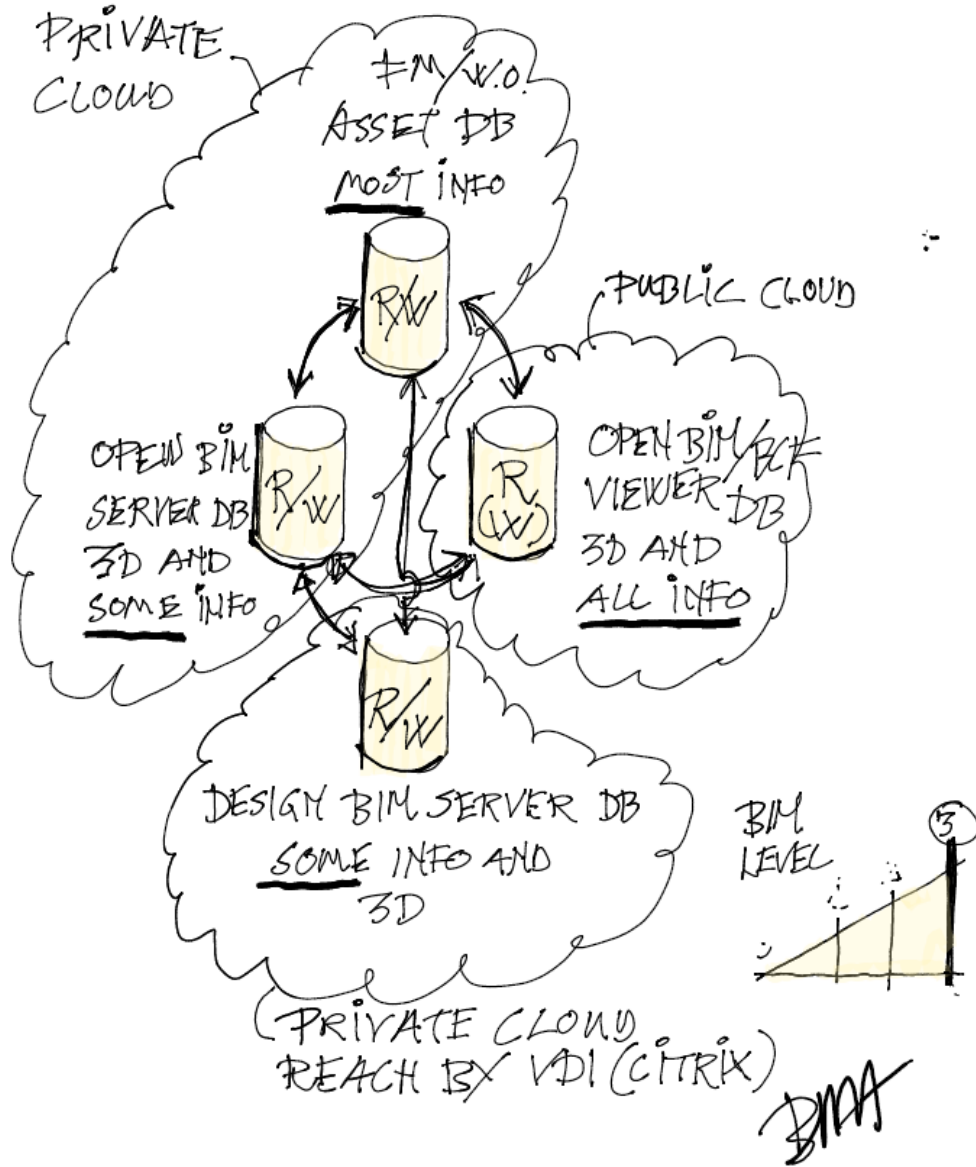 PRIVATE
CLOUD
FM/W.O.
ASSET DB
MOST INFO
R/W
PUBLIC CLOUD
OPEN BIM
SERVER DB
3D AND
SOME INFO
R/W
R
(W)
OPEN BIM/BCF
VIEWER DB
3D AND
ALL INFO
R/W
DESIGN BIM SERVER DB
SOME INFO AND
3D
PRIVATE CLOUD
REACH BY VDI (CITRIX)
BIM
LEVEL
3
BMA